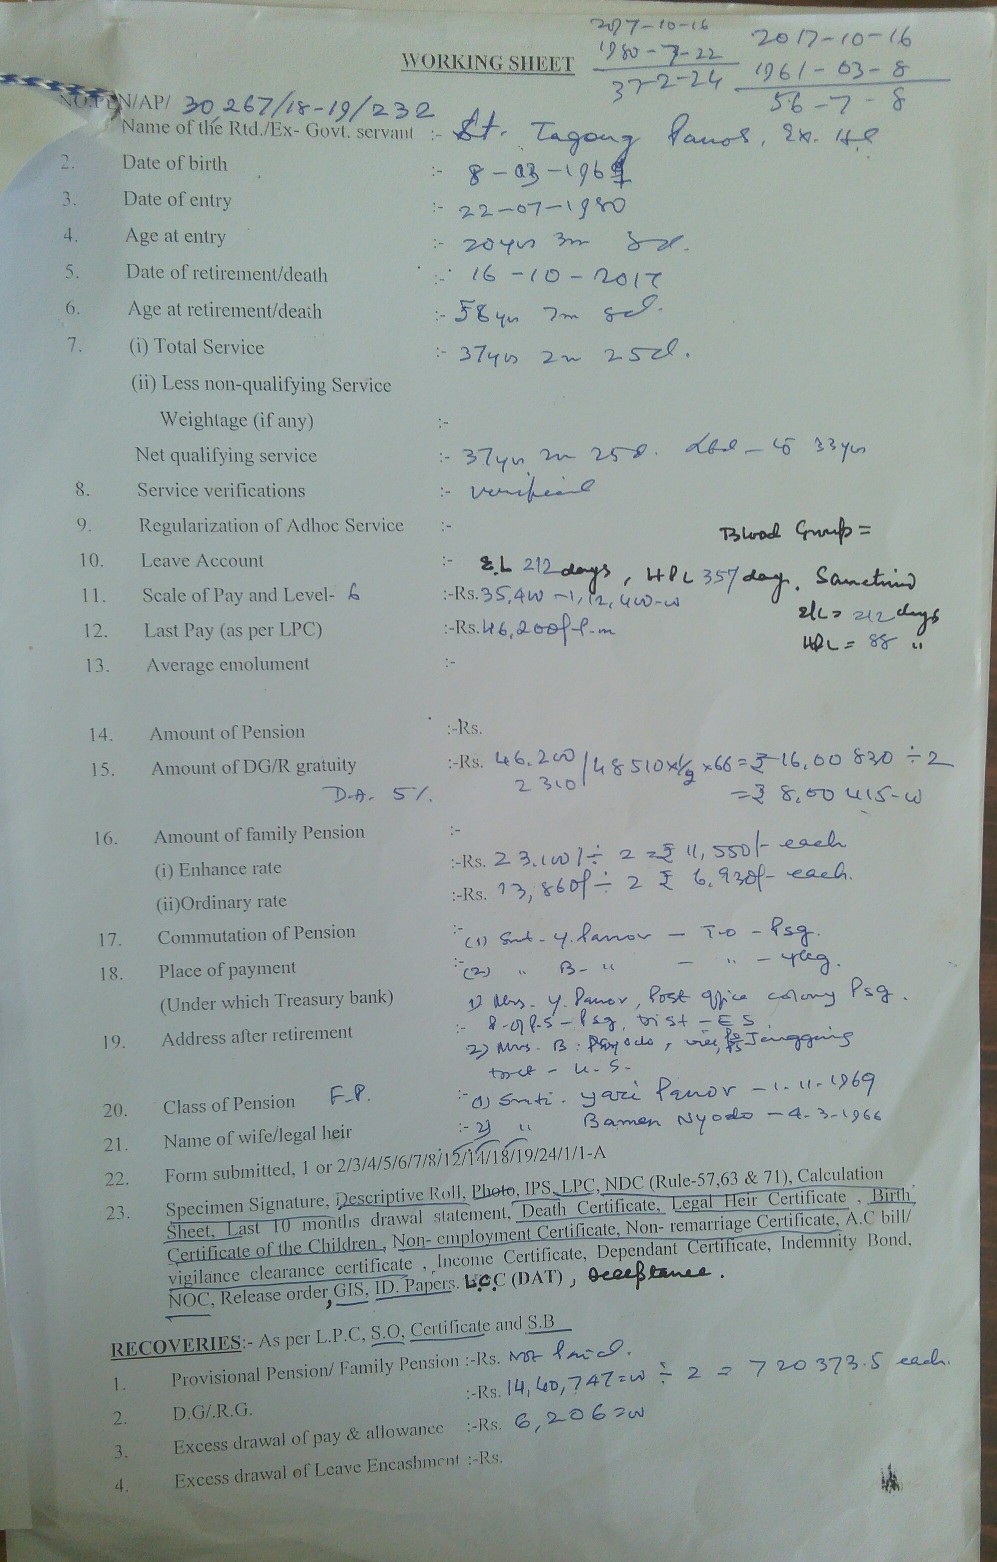 2017-10-16
1980-7-22
37-2-24
2017-10-16
1961-03-8
56-7-8
WORKING SHEET
NO.PEN/AP/ 30267/18-19/232
Name of the Rtd./Ex- Govt. servant :- Tagong Panor, Ex.
2. Date of birth :- 8-03-1961
3. Date of entry :- 22-07-1980
4. Age at entry :- 20yrs 3m 8d.
5. Date of retirement/death :- 16-10-2017
6. Age at retirement/death :- 56 yrs 7m 8d.
7. (i) Total Service :- 37yrs 2m 25d.
(ii) Less non-qualifying Service
Weightage (if any) :-
Net qualifying service :- 37yrs 2m 25d. 33yrs
8. Service verifications :- verified
9. Regularization of Adhoc Service :-
Blood Group =
10. Leave Account :- E.L 212 days, HPL 357 day. Sanctioned
11. Scale of Pay and Level- 6 :-Rs.35,400-1,12,400-00
E/L = 212 days
12. Last Pay (as per LPC) :-Rs.46,200/-p.m
HPL = 88 "
13. Average emolument :-
14. Amount of Pension :-Rs.
15. Amount of DG/R gratuity :-Rs. 46,200 / 48510 x 66 = ₹ 16,00 830 ÷ 2
D.A. 5% 2310 = ₹ 8,00 415-00
16. Amount of family Pension :-
(i) Enhance rate :-Rs. 23,100/ ÷ 2 = ₹ 11,550/- each
(ii)Ordinary rate :-Rs. 13,860/ ÷ 2 ₹ 6,930/- each.
17. Commutation of Pension :- (1) Smt. Y. Panor - T.O - Psg.
18. Place of payment :- (2) " B- " - " -
(Under which Treasury bank) 1) Mrs. Y. Panor, Post office colony Psg.
19. Address after retirement :- Psg, Dist - E S
2) Mrs. B. Nyodo, Jengging
Dist - U.S.
20. Class of Pension F.P. :- (1) Smti. Yari Panor - 1-11-1969
21. Name of wife/legal heir :- 2) " Bamen Nyodo - 4-3-1966
22. Form submitted, 1 or 2/3/4/5/6/7/8/12/14/18/19/24/1/1-A
23. Specimen Signature, Descriptive Roll, Photo, IPS, LPC, NDC (Rule-57,63 & 71), Calculation
Sheet, Last 10 months drawal statement, Death Certificate, Legal Heir Certificate , Birth
Certificate of the Children , Non- employment Certificate, Non- remarriage Certificate, A.C bill/
vigilance clearance certificate , Income Certificate, Dependant Certificate, Indemnity Bond,
NOC, Release order, GIS, ID. Papers. LCC (DAT) , Acceptance.
RECOVERIES:- As per L.P.C, S.O, Certificate and S.B
1. Provisional Pension/ Family Pension :-Rs. Not Paid.
2. D.G/.R.G. :-Rs. 14,40,747=00 ÷ 2 = 720373.5 each.
3. Excess drawal of pay & allowance :-Rs. 6,206=00
4. Excess drawal of Leave Encashment :-Rs.